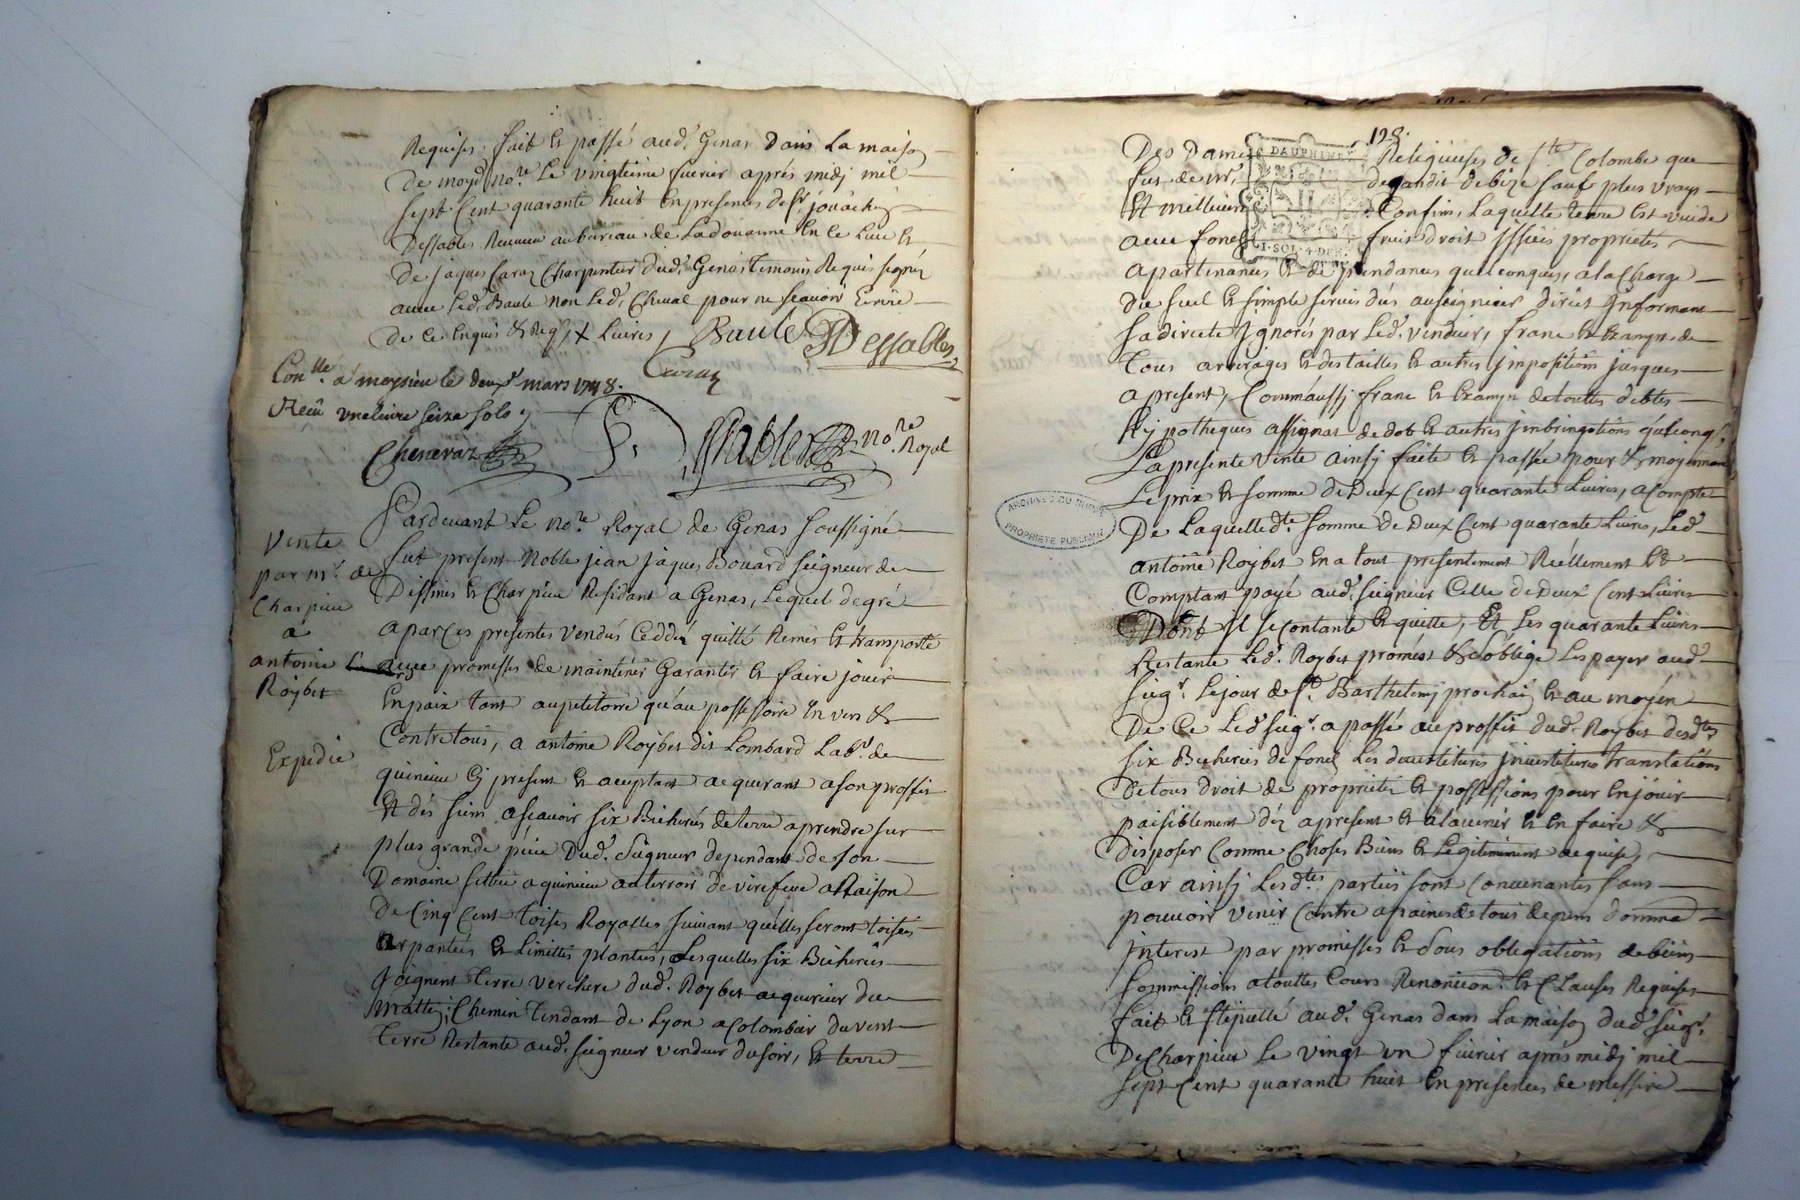 Requises. fait et passé aud.t Genas dans la maison
de moyd. no.re Le vingtieme fuvrier aprés midj mil
sept Cent quarante huit En presences de S.r jouachin
Dessables Receveur au bureau de Ladouanne En ce Lieu et
de jaques Caraz Charpentier dud.t Genas temoins Requis signés
avec Led.t Baule non Led.t Cheval pour ne scavoir Ecrire
de ce Enquis & Req.s X Livres Baule Dessables
Caraz
Con.llé a meysieu le deux.e mars 1748.
Reçu une livre seize sols
Chenavaz
Dessables no.re Royal
Pardevant Le no.re Royal de Genas soussigné
Vente
par m.r de
Charpieu
a
antoine
Roybet
Expedié
fut present Noble jean jaques Bouard seigneur de
Dessines et Charpieu Residant a Genas, Lequel de gré
a par ces presentes vendus Ceddéz quitté Remis et transporté
avec promesses de maintenir Garantir et faire jouir
En paix tant au petitoire qu'au possessoire Envers &
Contre tous, a antoine Roybet dit Lombard Lab.r de
quinieu Cy present et aceptant acquerant a son proffit
Et dés siens ascavoir six Bicherés de terre a prendre sur
plus grande piéce Dud.t Seigneur dependant de son
Domaine sittué a quinieu au terroir de virefeve a Raison
de Cinq Cent toises Royalles suivant qu'elles seront toisés
arpantées et Limittes plantées, Lesquelles six Bicherés
joignent terre verchere dud.t Roybet acquereur du
matin; Chemin tendant de Lyon a Colombier du vent
terre Restante aud.t seigneur vendeur du soir, et terre
198.
DAUPHINÉ
Des Dames Religieuses de S.te Colombe que
fut de m.r degandit de bize sauf plus vrays
Et meilleurs Confins, Laquelle terre Est vendue
avec fonds fruit droit issües proprietés
apartenances et dependances quelconques, a la Charge
du seul et simple servis dûs au seigneur direct Informant
sa directe Ignorés par Led.t vendeur, franc et Exampt de
tous arrerages et des tailles et autres Impositions jusques
a present, Comm'aussj franc et Exampt de touttes debtes
Hypotheques assignat de dot et autres
La presente vente ainsj faite et passée pour & moyennant
Le prix et somme de Deux Cent quarante Livres, a Compte
ARCHIVES DU RHÔNE
PROPRIÉTÉ PUBLIQUE
De Laquelle d.te somme de deux Cent quarante Livres, Led.t
antoine Roybet En a tout presentement Réellement Et
Comptant payé aud.t seigneur Celle de Deux Cent Livres
Dont Il se contante et quitte; Et Les quarante Livres
Restante Led.t Roybet promest & s'oblige Les payer aud.t
seig.r Le jour de S.t Barthelemj prochain et au moyen
De Ce Led.t seig.r a passé au proffit dud.t Roybet desd.tes
six Bicherées de fond Les devestitures investitures translations
De tous droit de proprietés et possessions pour En jouir
paisiblement déz a present et a l'avenir et En faire &
disposer Comme Choses Biens et Legitimement acquises,
Car ainsj Lesd.tes parties sont Convenantes sans
pouvoir venir Contre a paines de tous depens domma
interest par promesses et sous obligations de biens
sommissions a touttes Cours Renontion.s et Clauses Requises
fait et stipullé aud.t Genas dans La maison dud.t seig.r
De Charpieux Le vingt un fuvrier aprés midj mil
sept Cent quarante huit En presences de messire